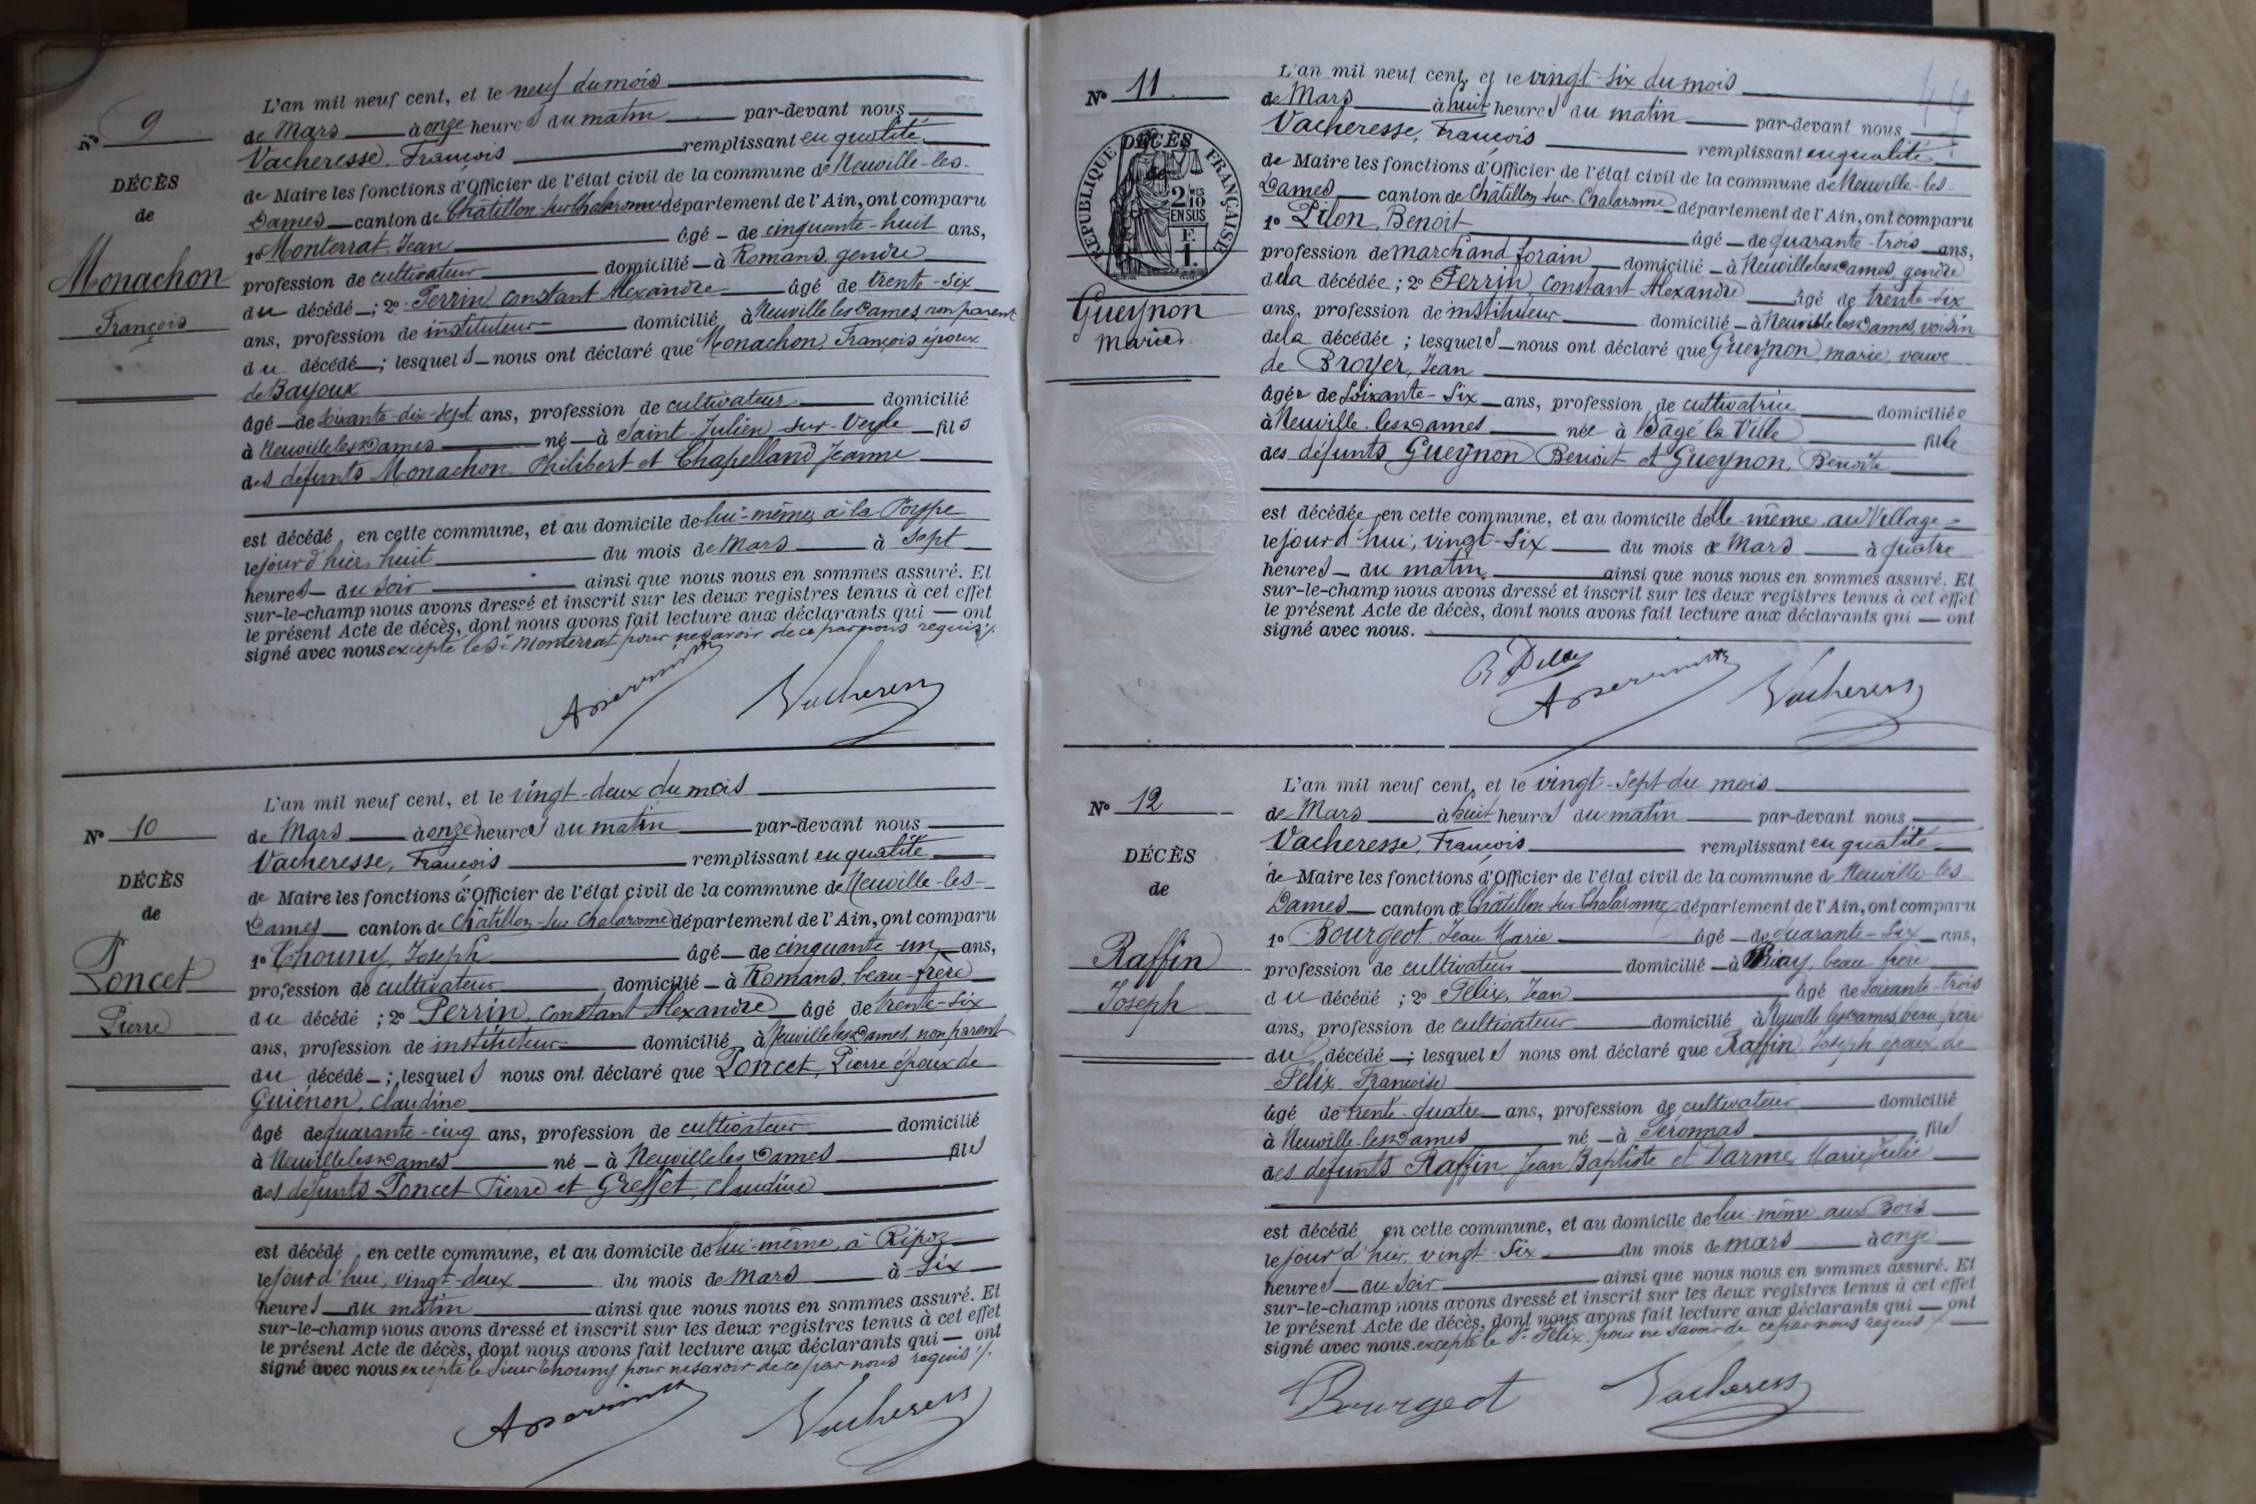 N° 9
DÉCÈS
de
Monachon
François
L'an mil neuf cent, et le neuf du mois
de Mars à onze heures du matin par-devant nous
Vacheresse, François remplissant en qualité
de Maire les fonctions d'Officier de l'état civil de la commune de Neuville-les-
Dames canton de Châtillon-sur-Chalaronne département de l'Ain, ont comparu
1° Monterrat, Jean âgé de cinquante-huit ans,
profession de cultivateur domicilié à Romans, gendre
du décédé ; 2° Perrin, Constant Alexandre âgé de trente-six
ans, profession de instituteur domicilié à Neuville les Dames, non parent
du décédé ; lesquels nous ont déclaré que Monachon, François époux
de Bayoux
âgé de soixante-dix-sept ans, profession de cultivateur domicilié
à Neuville les Dames né à Saint-Julien-sur-Veyle fils
des défunts Monachon, Philibert et Chapelland Jeanne
est décédé en cette commune, et au domicile de lui-même, à la Poyppe
le jour d'hier, huit du mois de Mars à sept
heures du soir ainsi que nous nous en sommes assuré. Et
sur-le-champ nous avons dressé et inscrit sur les deux registres tenus à cet effet
le présent Acte de décès, dont nous avons fait lecture aux déclarants qui ont
signé avec nous excepté le Sr Monterrat pour ne savoir de ce par nous requis ./.
Vacheresse
N° 10
DÉCÈS
de
Poncet
Pierre
L'an mil neuf cent, et le vingt-deux du mois
de Mars à onze heures du matin par-devant nous
Vacheresse, François remplissant en qualité
de Maire les fonctions d'Officier de l'état civil de la commune de Neuville-les-
Dames canton de Châtillon-sur-Chalaronne département de l'Ain, ont comparu
1° Chouny, Joseph âgé de cinquante-un ans,
profession de cultivateur domicilié à Romans, beau-frère
du décédé ; 2° Perrin, Constant Alexandre âgé de trente-six
ans, profession de instituteur domicilié à Neuville les Dames, non parent
du décédé ; lesquels nous ont déclaré que Poncet, Pierre époux de
Guiénon, Claudine
âgé de quarante-cinq ans, profession de cultivateur domicilié
à Neuville les Dames né à Neuville les Dames fils
des défunts Poncet Pierre et Greffet, Claudine
est décédé en cette commune, et au domicile de lui-même, à Ripoz
le jour d'hui, vingt-deux du mois de Mars à six
heures du matin ainsi que nous nous en sommes assuré. Et
sur-le-champ nous avons dressé et inscrit sur les deux registres tenus à cet effet
le présent Acte de décès, dont nous avons fait lecture aux déclarants qui ont
signé avec nous excepté le sieur Chouny pour ne savoir de ce par nous requis ./.
Vacheresse
N° 11
RÉPUBLIQUE FRANÇAISE
DÉCÈS
de
2/10 MES
EN SUS
F.
1.
Gueynon
Marie
L'an mil neuf cent, et le vingt-six du mois
de Mars à huit heures du matin par-devant nous
Vacheresse, François remplissant en qualité
de Maire les fonctions d'Officier de l'état civil de la commune de Neuville-les-
Dames canton de Châtillon-sur-Chalaronne département de l'Ain, ont comparu
1° Pilon, Benoit âgé de quarante-trois ans,
profession de marchand forain domicilié à Neuville les Dames, gendre
de la décédée ; 2° Perrin, Constant Alexandre âgé de trente-six
ans, profession de instituteur domicilié à Neuville les Dames, voisin
de la décédée ; lesquels nous ont déclaré que Gueynon, Marie, veuve
de Broyer, Jean
âgée de soixante-six ans, profession de cultivatrice domiciliée
à Neuville-les-Dames née à Bâgé la Ville fille
des défunts Gueynon Benoit et Gueynon, Benoîte
est décédée en cette commune, et au domicile d'elle-même, au Village
le jour d'hui, vingt-six du mois de Mars à quatre
heures du matin ainsi que nous nous en sommes assuré. Et
sur-le-champ nous avons dressé et inscrit sur les deux registres tenus à cet effet
le présent Acte de décès, dont nous avons fait lecture aux déclarants qui ont
signé avec nous.
Vacheresse
N° 12
DÉCÈS
de
Raffin
Joseph
L'an mil neuf cent, et le vingt-sept du mois
de Mars à huit heures du matin par-devant nous
Vacheresse, François remplissant en qualité
de Maire les fonctions d'Officier de l'état civil de la commune de Neuville les
Dames canton de Châtillon-sur-Chalaronne département de l'Ain, ont comparu
1° Bourgeot, Jean Marie âgé de quarante-six ans,
profession de cultivateur domicilié à Biay, beau frère
du décédé ; 2° Félix, Jean âgé de soixante-trois
ans, profession de cultivateur domicilié à Neuville les Dames, beau père
du décédé ; lesquels nous ont déclaré que Raffin, Joseph époux de
Félix, Françoise
âgé de trente-quatre ans, profession de cultivateur domicilié
à Neuville-les-Dames né à Péronnas fils
des défunts Raffin, Jean Baptiste et Darme, Marie Julie
est décédé en cette commune, et au domicile de lui-même, aux Bois
le jour d'hier, vingt-six du mois de Mars à onze
heures du soir ainsi que nous nous en sommes assuré. Et
sur-le-champ nous avons dressé et inscrit sur les deux registres tenus à cet effet
le présent Acte de décès, dont nous avons fait lecture aux déclarants qui ont
signé avec nous excepté le Sr Félix, pour ne savoir de ce par nous requis ./.
Bourgeot Vacheresse